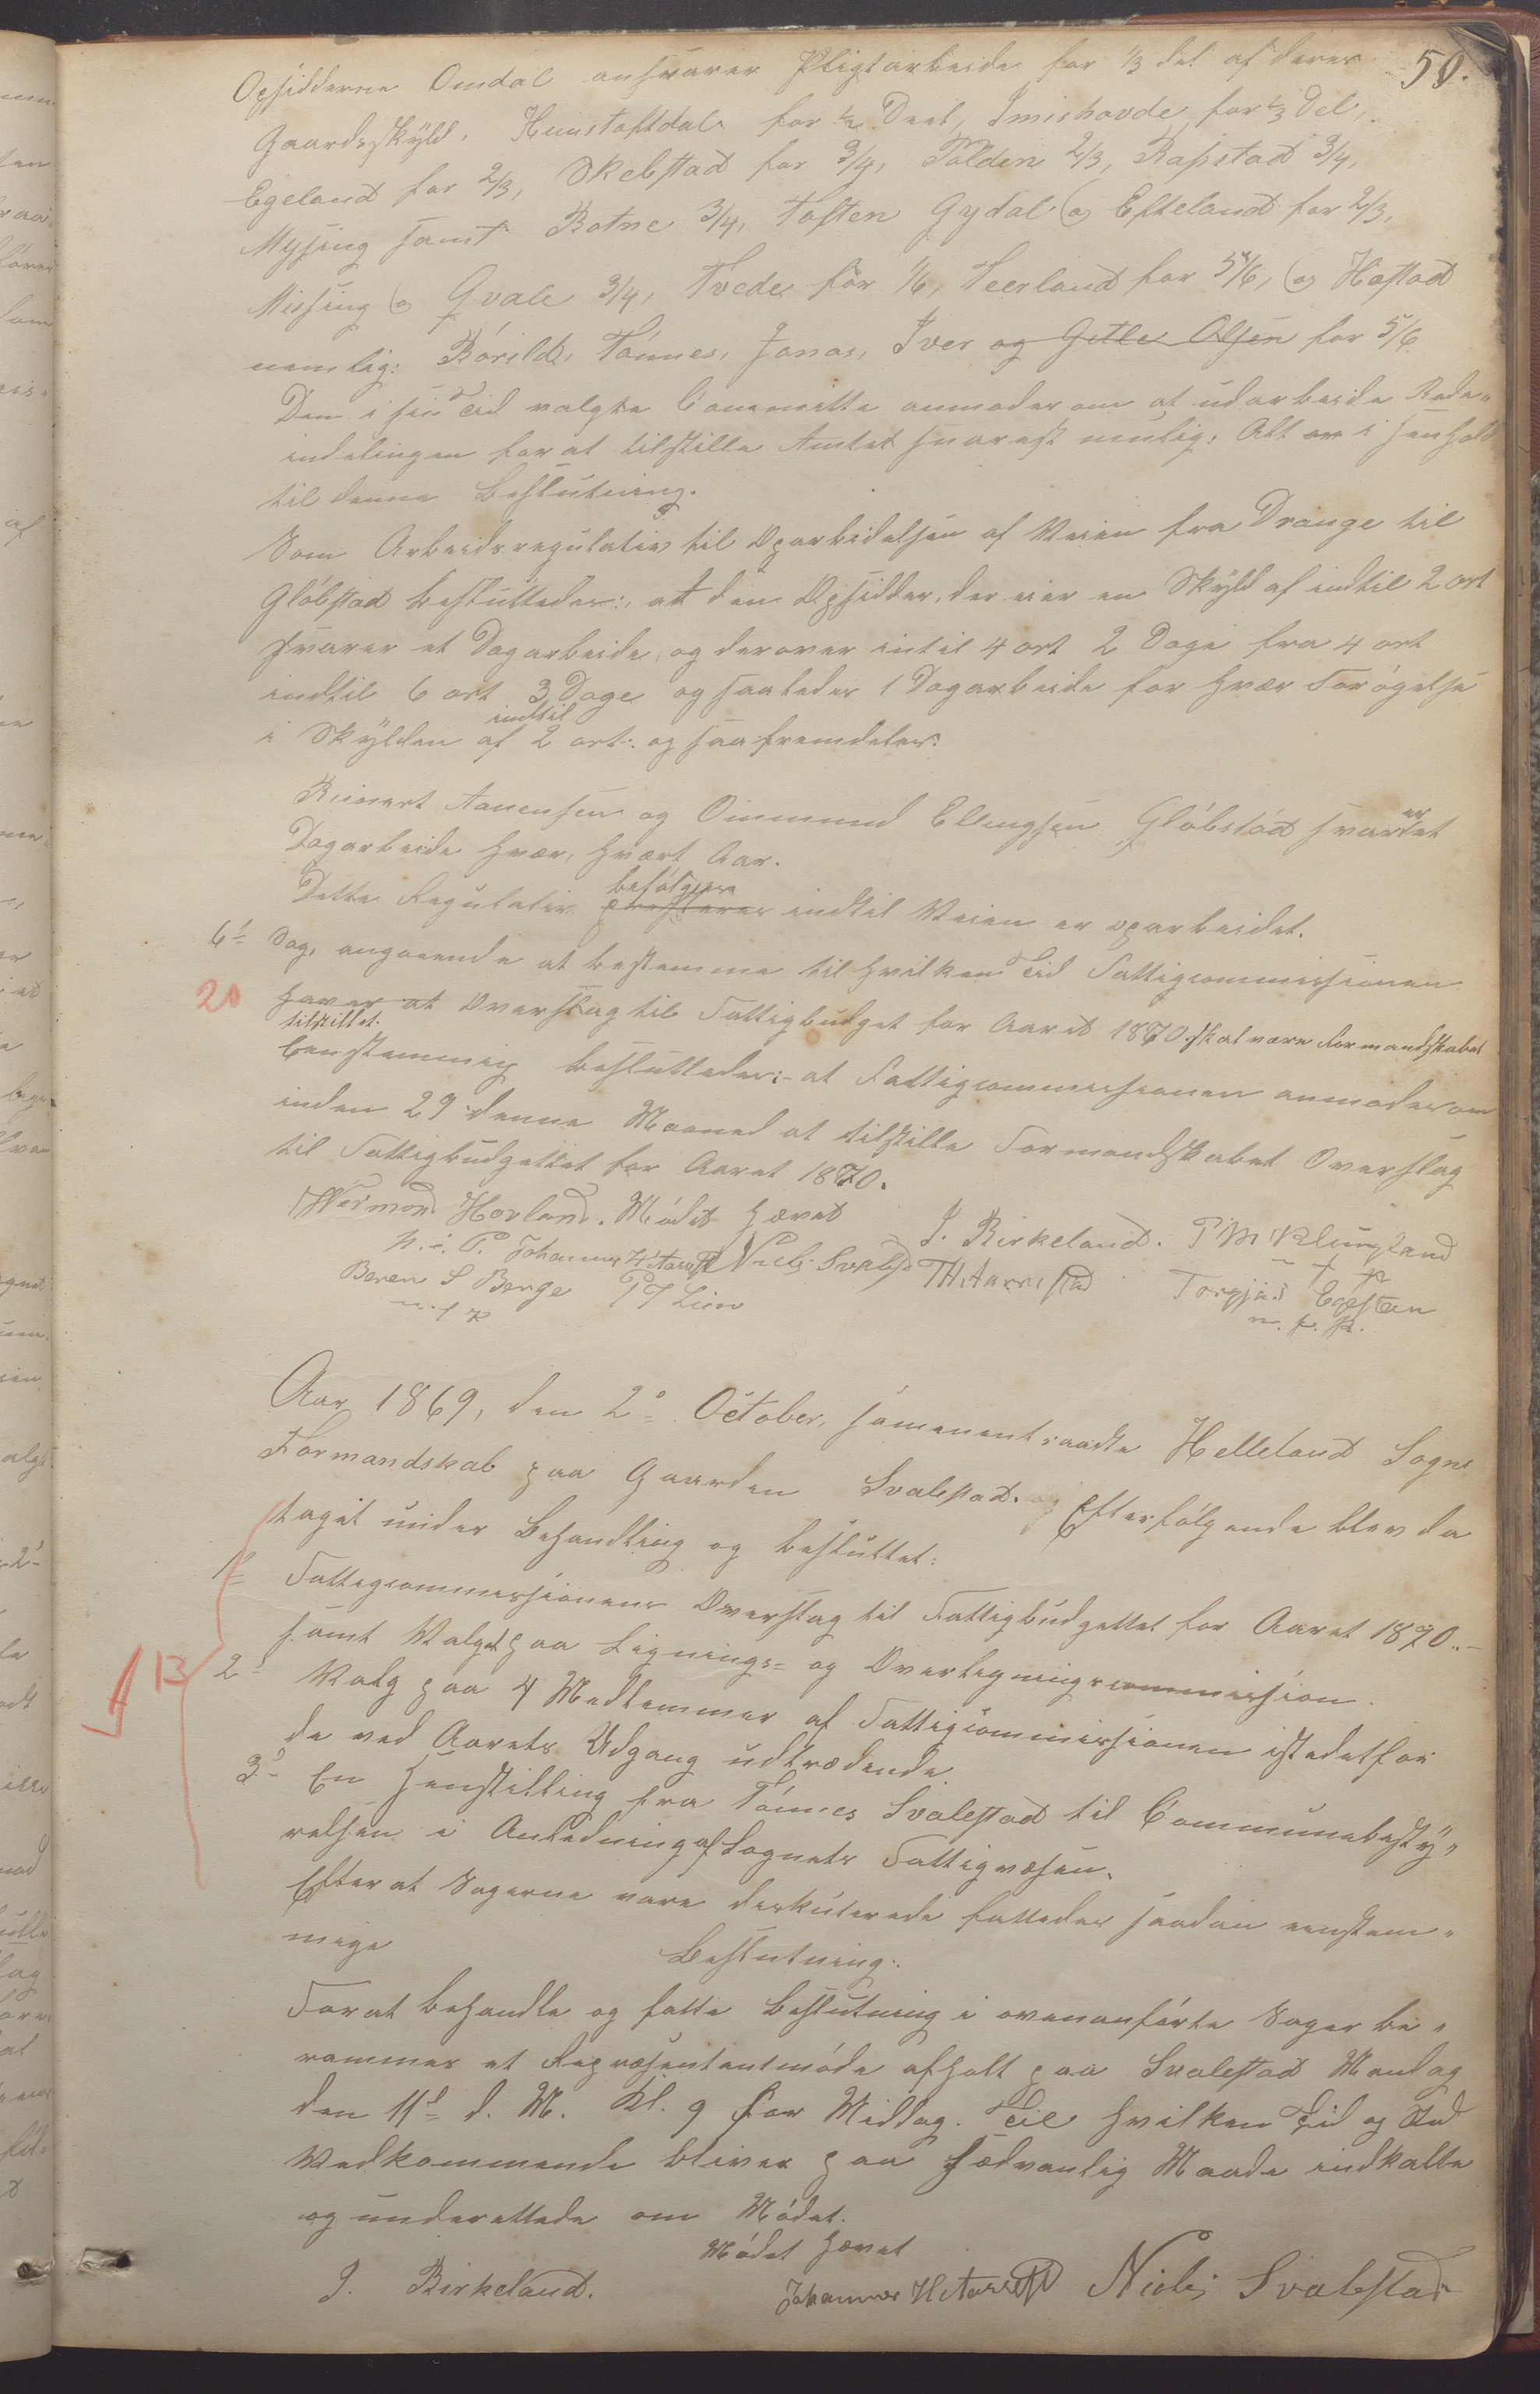 50.
Opsidderne Omdal ansvarer Pligtarbeide for 1/3 del af deres
Gaardsskyld, Hunstoftdal for 1/2 Deel, Imishovde for 1/3 Del,
Egeland for 2/3, Skebstad for 3/4, Tölden 2/3, Rapstad 3/4,
Mysing samt Botne 3/4, Toften Gydal og Efteland for 2/3,
Missing og Qvale 3/4, Tvedes for 1/6, Teerland for 5/6, og Hastad
nemlig: Börild, Tönnes, Jonas, Iver og Getle Olsen for 5/6
Den i sin Tid valgte Committe anmodes om at udarbeide Rode-
indelingen for at tilstille Amtet snarest mulig. Alt i Henhold
til denne Beslutning.
Som Arbeidsregulativ til Oparbeidelsen af Veien fra Drange til
Glöbstad besluttedes: at den Opsidder, der eier en Skyld af indtil 2 ort
svarer et Dagarbeide, og derover intil 4 ort 2 Dage fra 4 ort
indtil 6 ort 3 Dage og saaledes 1 Dagarbeide for hver Forögelse
indtil
i Skylden af 2 ort: og saa fremdeles:
Reinert Aanensen og Ommund Ellingsen Glöbstad svarer et
Dagarbeide hver, hvert Aar.
befölges
Dette Regulativ præsteres indtil Veien er oparbeidet.
6t Sag, angaaende at bestemme til hvilken Tid Fattigcommissionen
20 haver at Overslag til Fattigbudget for Aaret 1870 skal være Formandskabet
tilstillet.
Eenstemmig besluttedes:- at Fattigcommissionen anmodes om
inden 29 denne Maaned at tilstille Formandskabet Overslag
til Fattigbudgettet for Aaret 1870.
Wermond Hovland. Mödet hævet J. Birkeland. P M Klungland
m. f. P. Johannes H Aarrestad Niels Svalestad TH Aarrestad m f P
Beren S Berge P T Lien Torgjus Eigesteen
m f P m. f. P.
Aar 1869, den 2. October, sammentraadte Helleland Sogns
Formandskab paa Gaarden Svalestad. Efterfölgende blev da
taget under Behandling og besluttet:
1. Fattigcommissionens Overslag til Fattigbudgettet for Aaret 1870.-
samt Valget paa Lignings- og Overligningscommission.
13
2. Valg paa 4 Medlemmer af Fattigcommissionen istedetfor
de ved Aarets Udgang udtrædende.
3. En Henstilling fra Tönnes Svalestad til Communebesty-
relsen i Anledning af Sognets Fattigvæsen.
Efter at Sagerne vare deskuterede fattedes saadan eenstem-
mige Beslutning:
For at behandle og fatte Beslutning i ovenanförte Sager be-
rammes et Repræsentantmöde afholt paa Svalestad Mandag
den 11t d. M. Kl. 9 for Middag. Til hvilken Tid og Sted
Vedkommende bliver paa sædvanlig Maade indkalte
og underettede om Mödet.
Mödet hævet
J. Birkeland. Johannes H Aarrestad Niels Svalestad